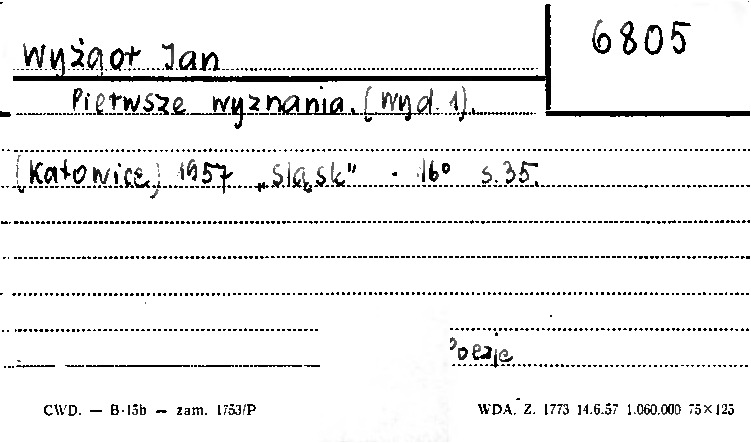 6805
Wyżgoł Jan
Pierwsze wyznania. (Wyd. 1).
(Katowice) 1957 „Śląsk" - 16° s. 35.
Poezje
CWD. — B-15b — zam. 1753/P
WDA. Z. 1773 14.6.57 1.060.000 75×125